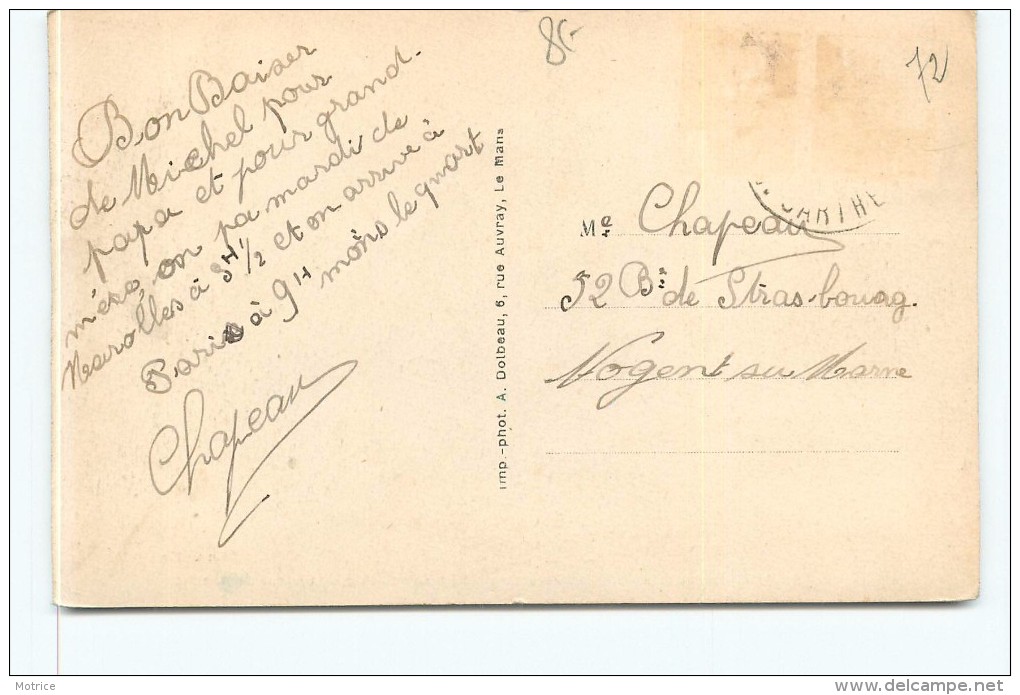 Bon Baiser
de Michel pour
papa et pour grand-
mère, on pa mardi de
Nesrolles à 3H 1/2 et on arrive à
Paris à 9H mons le quart
Chapeau
Imp.-phot. A. Dolbeau, 6, rue Auvray, Le Mans
8F-
72
SARTHE
Me Chapeau
52 Bd de Strasbouag.
Nogent su Marne
Motrice
http://www.delcampe.net